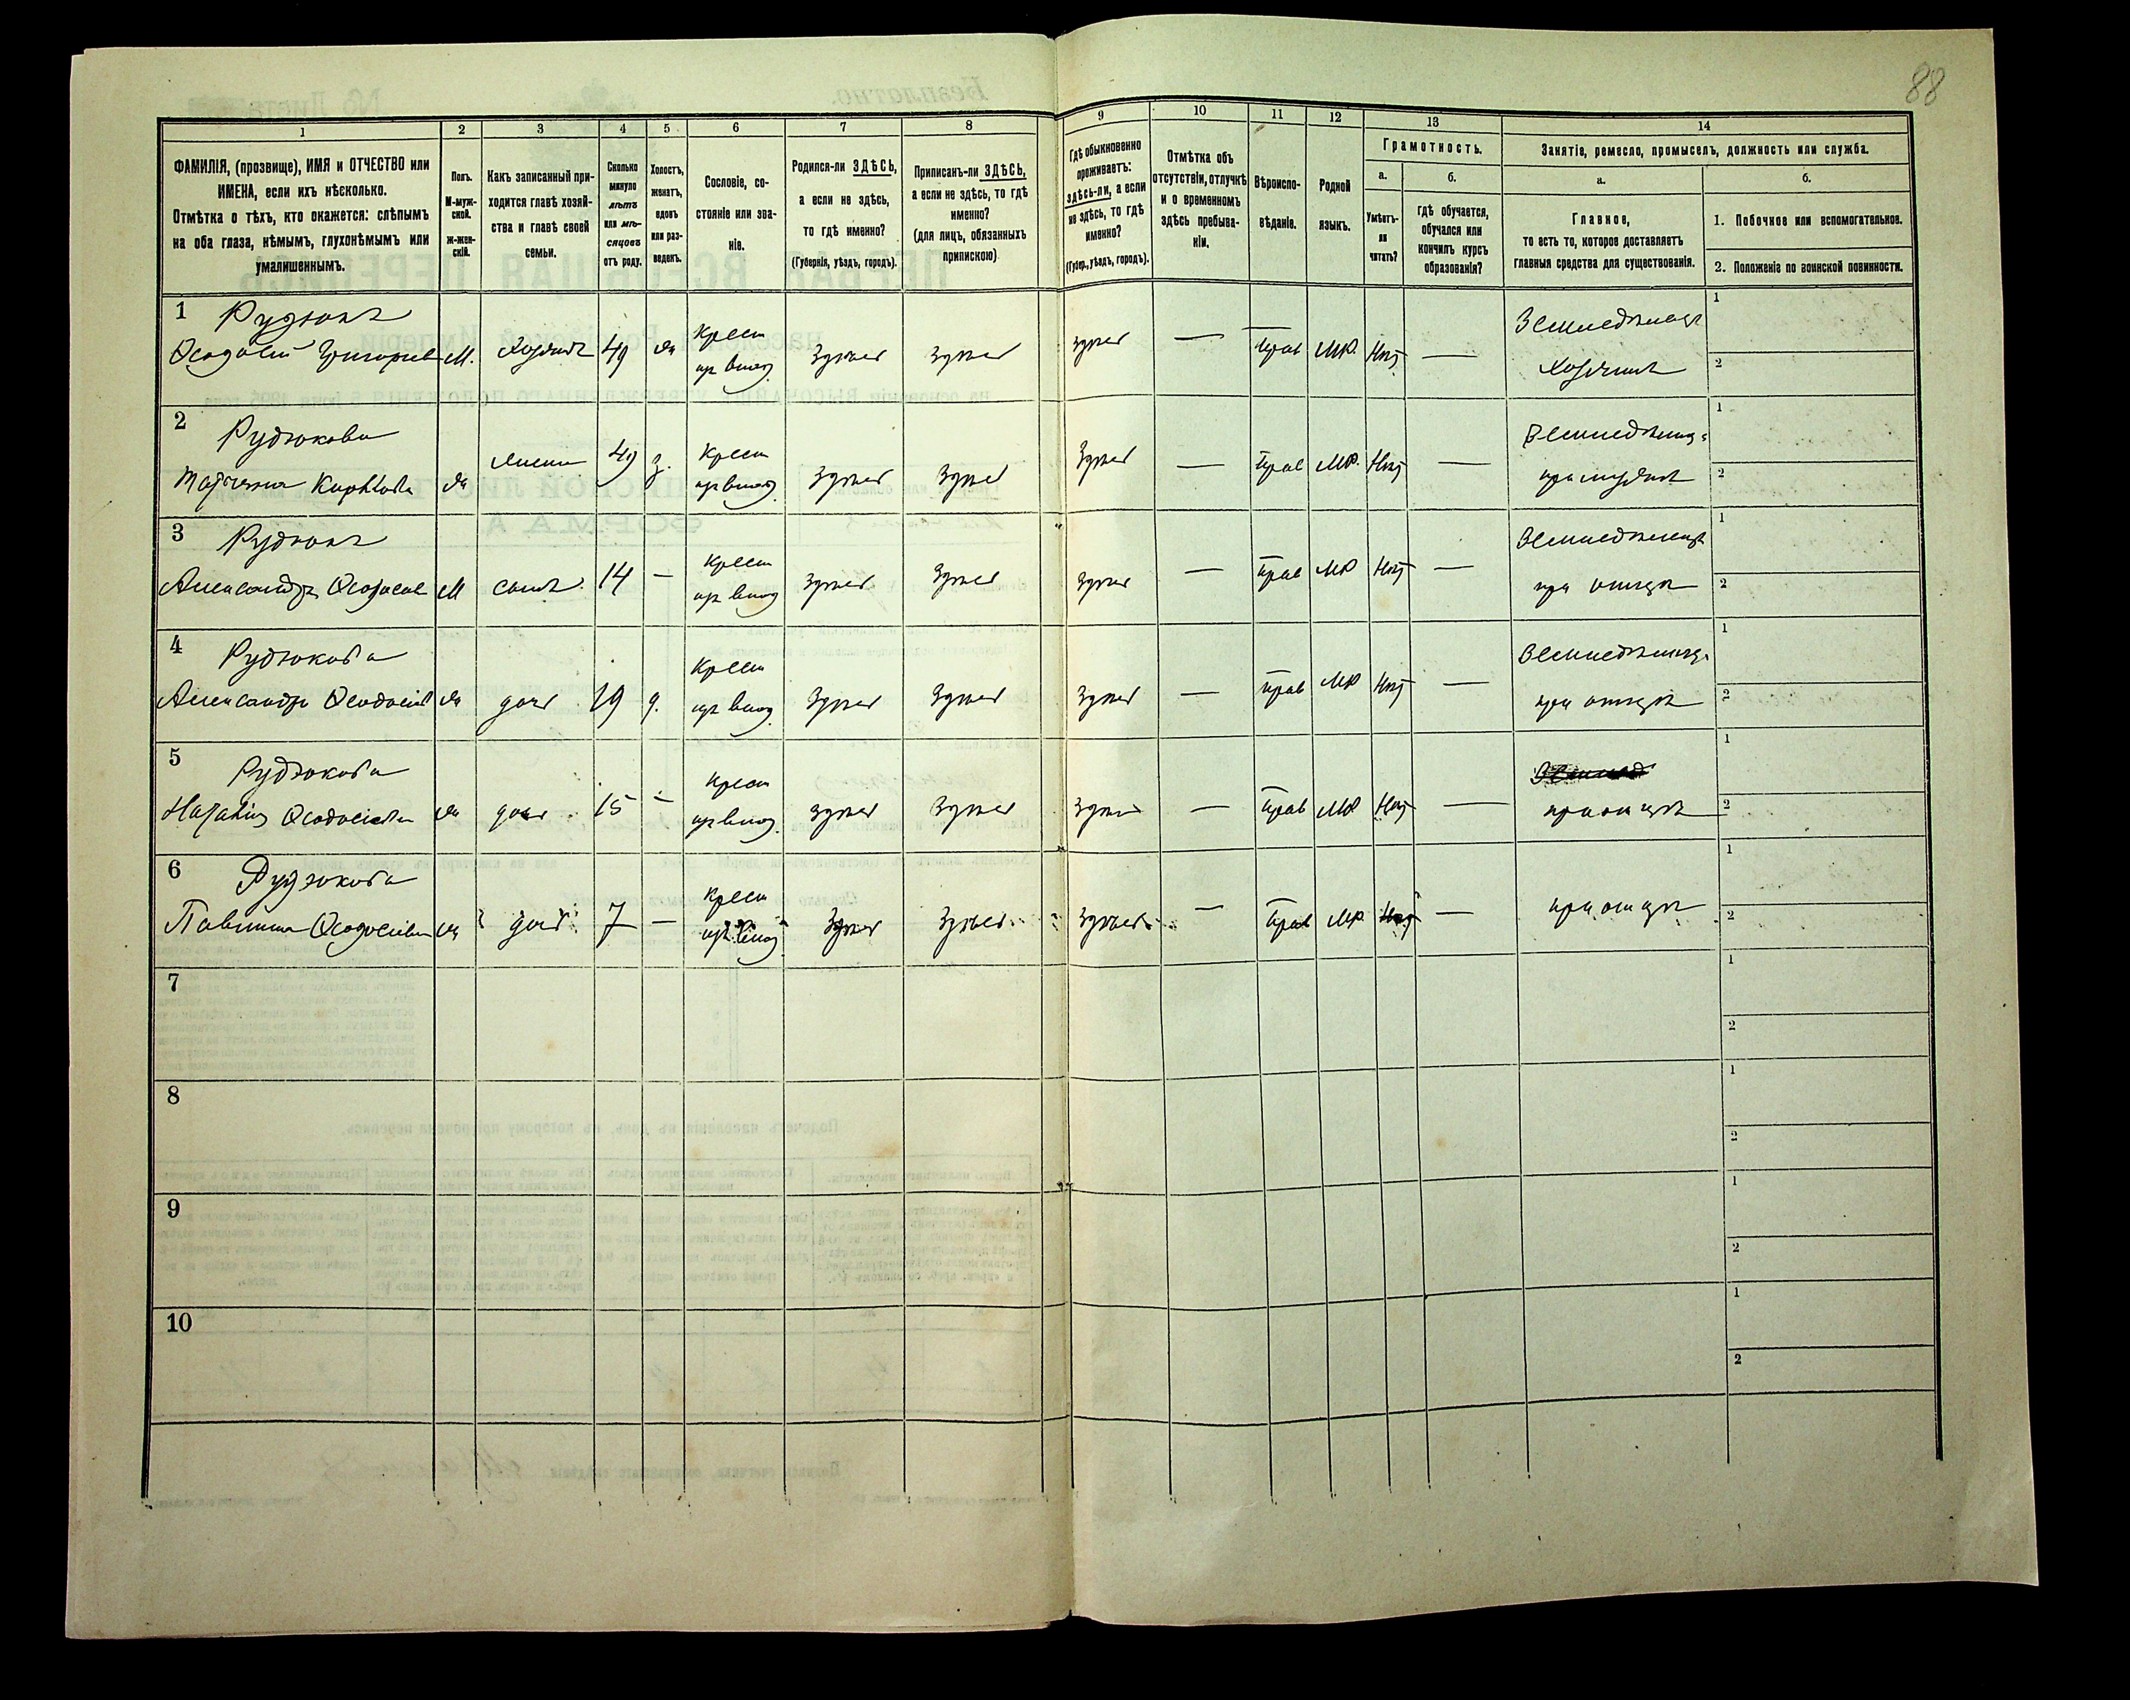 88
1 2 3 4 5 6 7 8 9 10 11 12 13 14
ФАМИЛІЯ, (прозвище), ИМЯ и ОТЧЕСТВО или
ИМЕНА, если ихъ нѣсколько.
Отмѣтка о тѣхъ, кто окажется: слѣпымъ
на оба глаза, нѣмымъ, глухонѣмымъ или
умалишеннымъ.
Полъ.
М-муж-
ской.
Ж-жен-
скій.
Какъ записанный при-
ходится главѣ хозяй-
ства и главѣ своей
семьи.
Сколько
минуло
лѣтъ
или мѣ-
сяцовъ
отъ роду.
Холостъ,
женатъ,
вдовъ
или раз-
веденъ.
Сословіе, со-
стояніе или зва-
ніе.
Родился-ли ЗДѢСЬ,
а если не здѣсь,
то гдѣ именно?
(Губернія, уѣздъ, городъ).
Приписанъ-ли ЗДѢСЬ,
а если не здѣсь, то гдѣ
именно?
(для лицъ, обязанныхъ
припискою)
Гдѣ обыкновенно
проживаетъ:
здѣсь-ли, а если
не здѣсь, то гдѣ
именно?
(Губер., уѣздъ, городъ).
Отмѣтка объ
отсутствіи, отлучкѣ
и о временномъ
здѣсь пребыва-
ніи.
Вѣроиспо-
вѣданіе.
Родной
языкъ.
Грамотность.
а.
Умѣетъ-
ли
читать?
б.
Гдѣ обучается,
обучался или
кончилъ курсъ
образованія?
Занятіе, ремесло, промыселъ, должность или служба.
а.
Главное,
то есть то, которое доставляетъ
главныя средства для существованія.
б.
1. Побочное или вспомогательное.
2. Положеніе по воинской повинности.
1 Рудюкъ Крест Земледѣлецъ 1
Ѳеодосій Григорьев М. Хозяинъ 49 ж из влад здѣсь здѣсь здѣсь — Прав МР. Нѣт — Хозяинъ 2
2 Рудюкова Крест Земледѣлецъ 1
Татьяна ж жена 49 з. из влад здѣсь здѣсь здѣсь — Прав МР. Нѣт — при мужѣ 2
3 Рудюкъ Крест Земледѣлецъ 1
Александръ Ѳеодосіев М сынъ 14 — из влад здѣсь здѣсь здѣсь — Прав МР Нѣт — при отцѣ 2
4 Рудюкова Крест Земледѣлецъ 1
Александра Ѳеодосіев ж дочь 19 д. из влад здѣсь здѣсь здѣсь — Прав МР Нѣт — при отцѣ 2
5 Рудюкова Крест 1
Ѳеодосіева ж дочь 15 — из влад здѣсь здѣсь здѣсь — Прав МР Нѣт — при отцѣ 2
6 Рудюкова Крест 1
Ѳеодосіева ж дочь 7 — из влад здѣсь здѣсь здѣсь — Прав МР Нѣт — при отцѣ 2
7 1
2
8 1
2
9 1
2
10 1
2